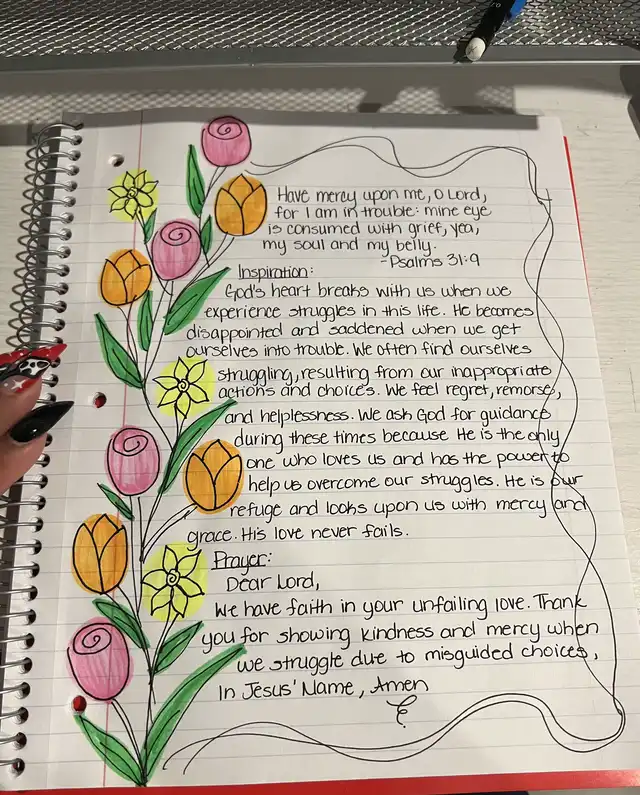 Have mercy upon me, O Lord,
for I am in trouble: mine eye
is consumed with grief, yea,
my soul and my belly.
-Psalms 31:9
Inspiration:
God's heart breaks with us when we
experience struggles in this life. He becomes
disappointed and saddened when we get
ourselves into trouble. We often find ourselves
struggling, resulting from our inappropriate
actions and choices. We feel regret, remorse,
and helplessness. We ask God for guidance
during these times because He is the only
one who loves us and has the power to
help us overcome our struggles. He is our
refuge and looks upon us with mercy and
grace. His love never fails.
Prayer:
Dear Lord,
We have faith in your unfailing love. Thank
you for showing kindness and mercy when
we struggle due to misguided choices,
In Jesus' Name, Amen